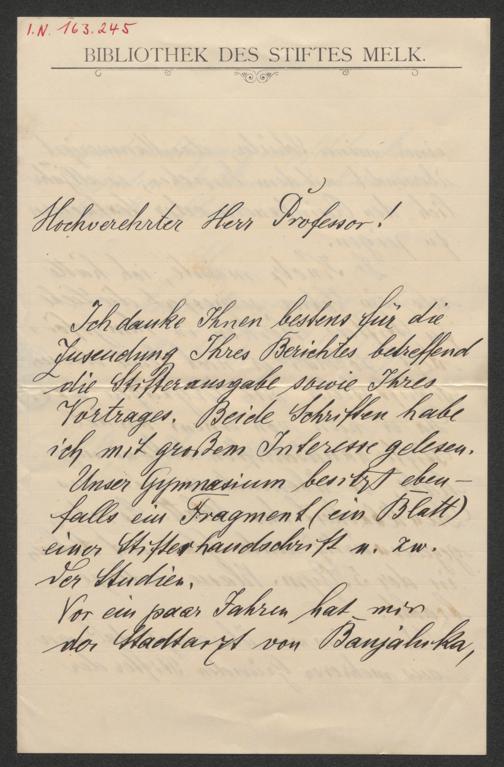 I.N. 163.245
BIBLIOTHEK DES STIFTES MELK.
Hochverehrter Herr Professor!
Ich danke Ihnen bestens für die
Zusendung Ihres Berichtes betreffend
die Stifterausgabe sowie Ihres
Vortrages. Beide Schriften habe
ich mit großem Interesse gelesen.
Unser Gymnasium besitzt eben-
falls ein Fragment (ein Blatt)
einer Stifterhandschrift u. zw.
der Studien.
Vor ein paar Jahren hat mir
der Stadtarzt von Banjaluka,